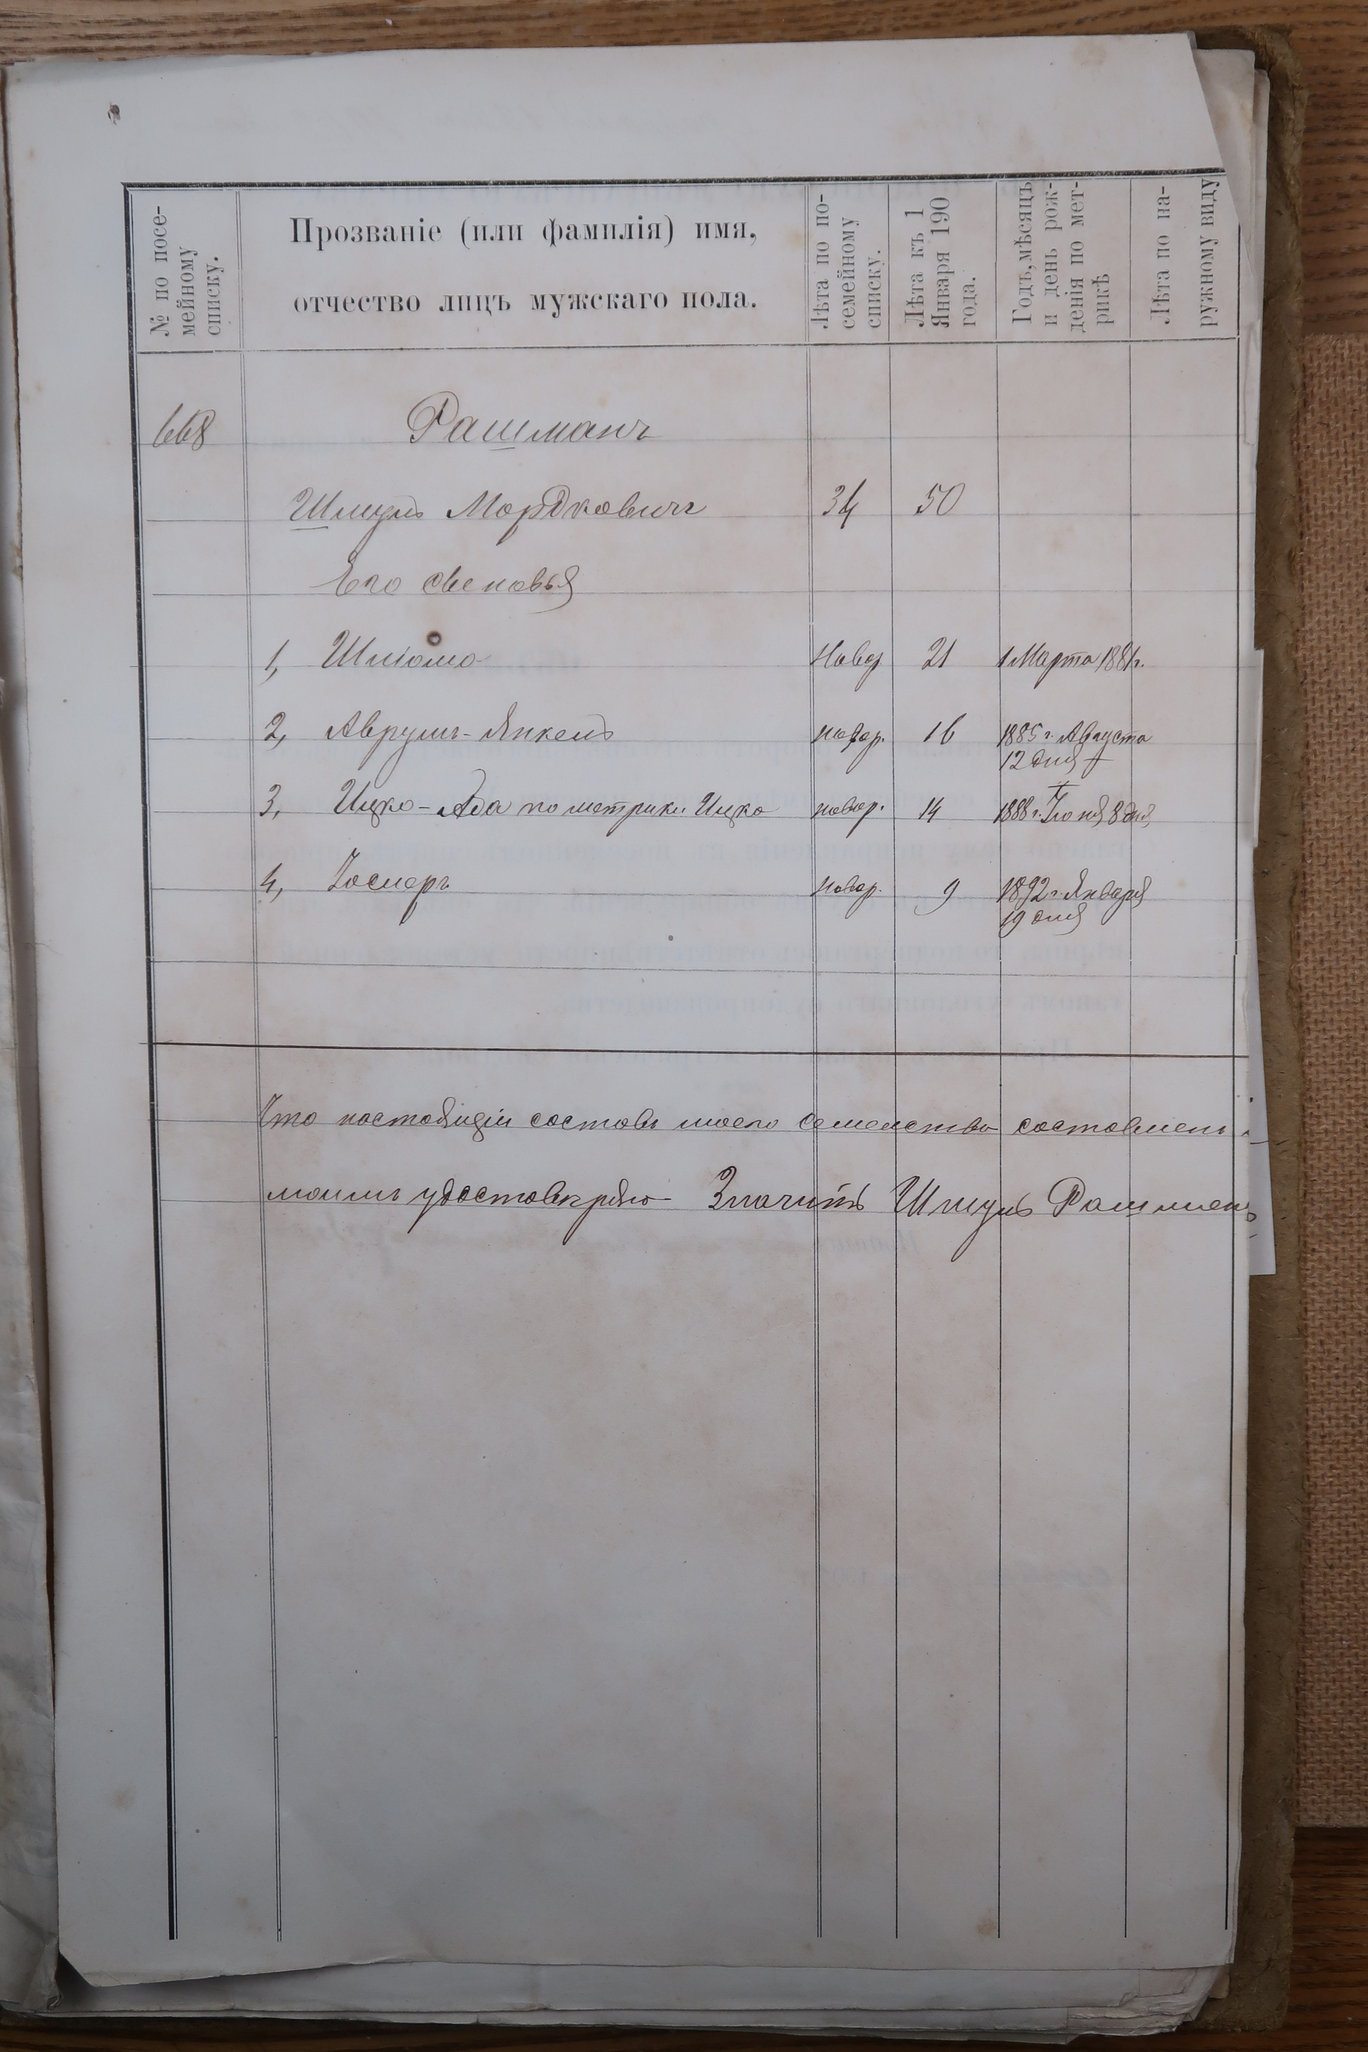 № по посе-
мейному
списку.
Прозваніе (или фамилія) имя,
отчество лицъ мужскаго пола.
Лѣта по по-
семейному
списку.
Лѣта къ 1
Января 190
года.
Годъ, мѣсяцъ
и день рож-
денія по мет-
рикѣ
Лѣта по на-
ружному виду
668 Рашманъ
Шмуль Мордковичъ 34 50
Его сыновья
1, Шліома Новор 21 1 Марта 1881г.
2, Аврумъ-Янкель новор. 16 1885 г. Августа
12 дня
3, Ицко - Ада по метрики Ицко новор. 14 1888 г. Іюня 8 дня
4, Іосиеръ новор. 9 1892 г. Января
19 дня
Что настоящій составъ моего семейства составленъ
моимъ удостовѣряю Значитъ Шмуль Рашманъ